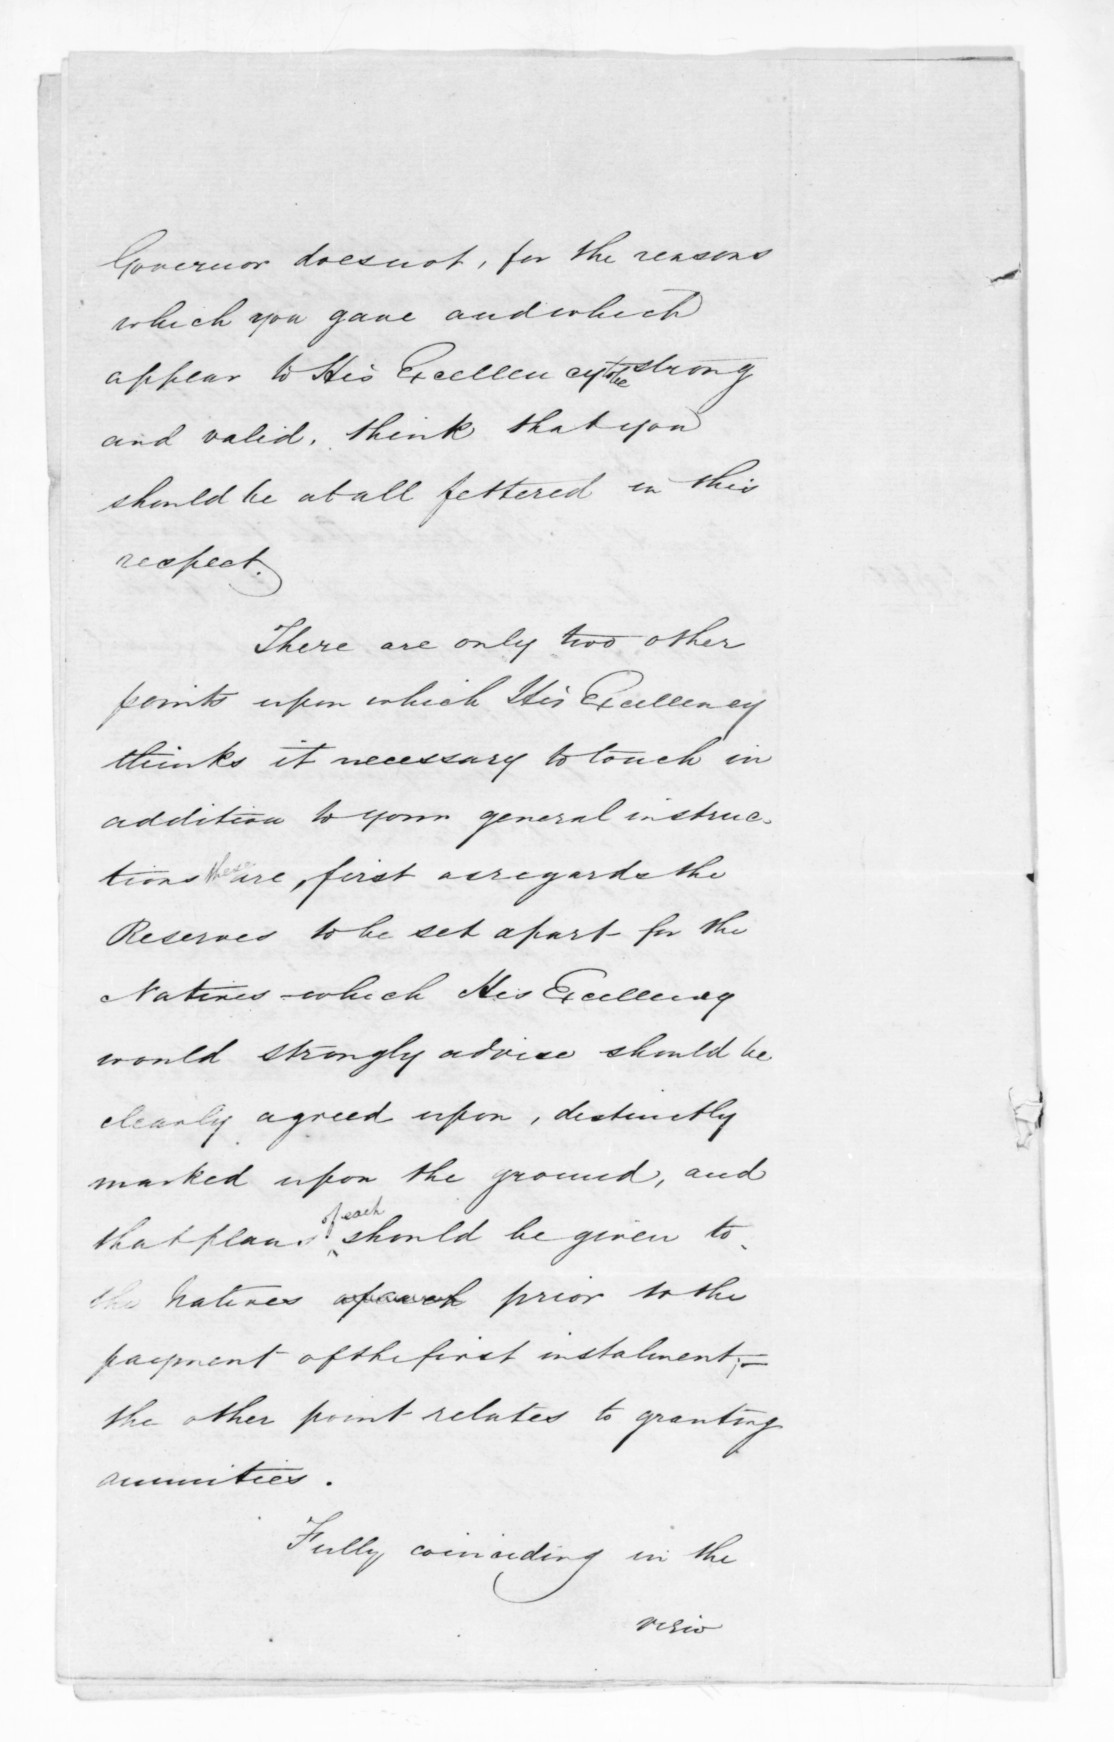 Governor does not, for the reasons
which you gave and which
appear to His Excellency to be strong
and valid, think that you
should be at all fettered in this
respect.
There are only two other
points upon which His Excellency
thinks it necessary to touch in
addition to your general instruc-
tions these are, first as regards the
Reserves to be set apart for the
Natives which His Excellency
would strongly advise should be
clearly agreed upon, distinctly
marked upon the ground, and
that plans of each should be given to
the Natives prior to the
payment of the first instalment;—
the other point relates to granting
annuities.
Fully coinciding in the
view